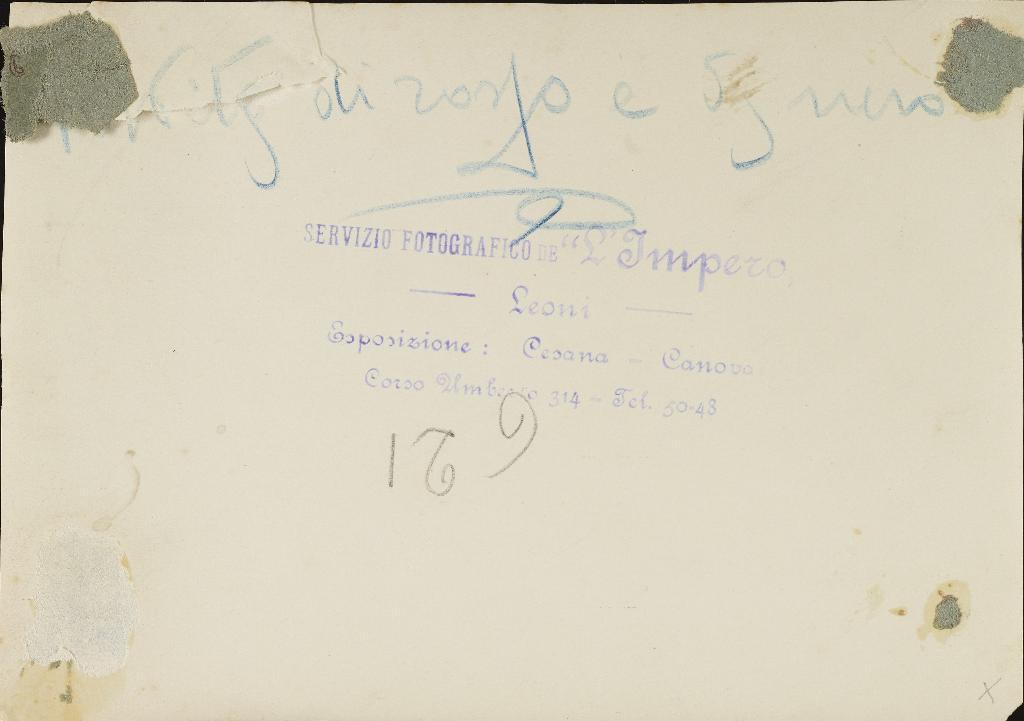 di rosso e di nero
SERVIZIO FOTOGRAFICO DE "L'Impero"
Leoni
Esposizione: Cesana - Canova
Corso Umberto 314 - Tel. 50-48